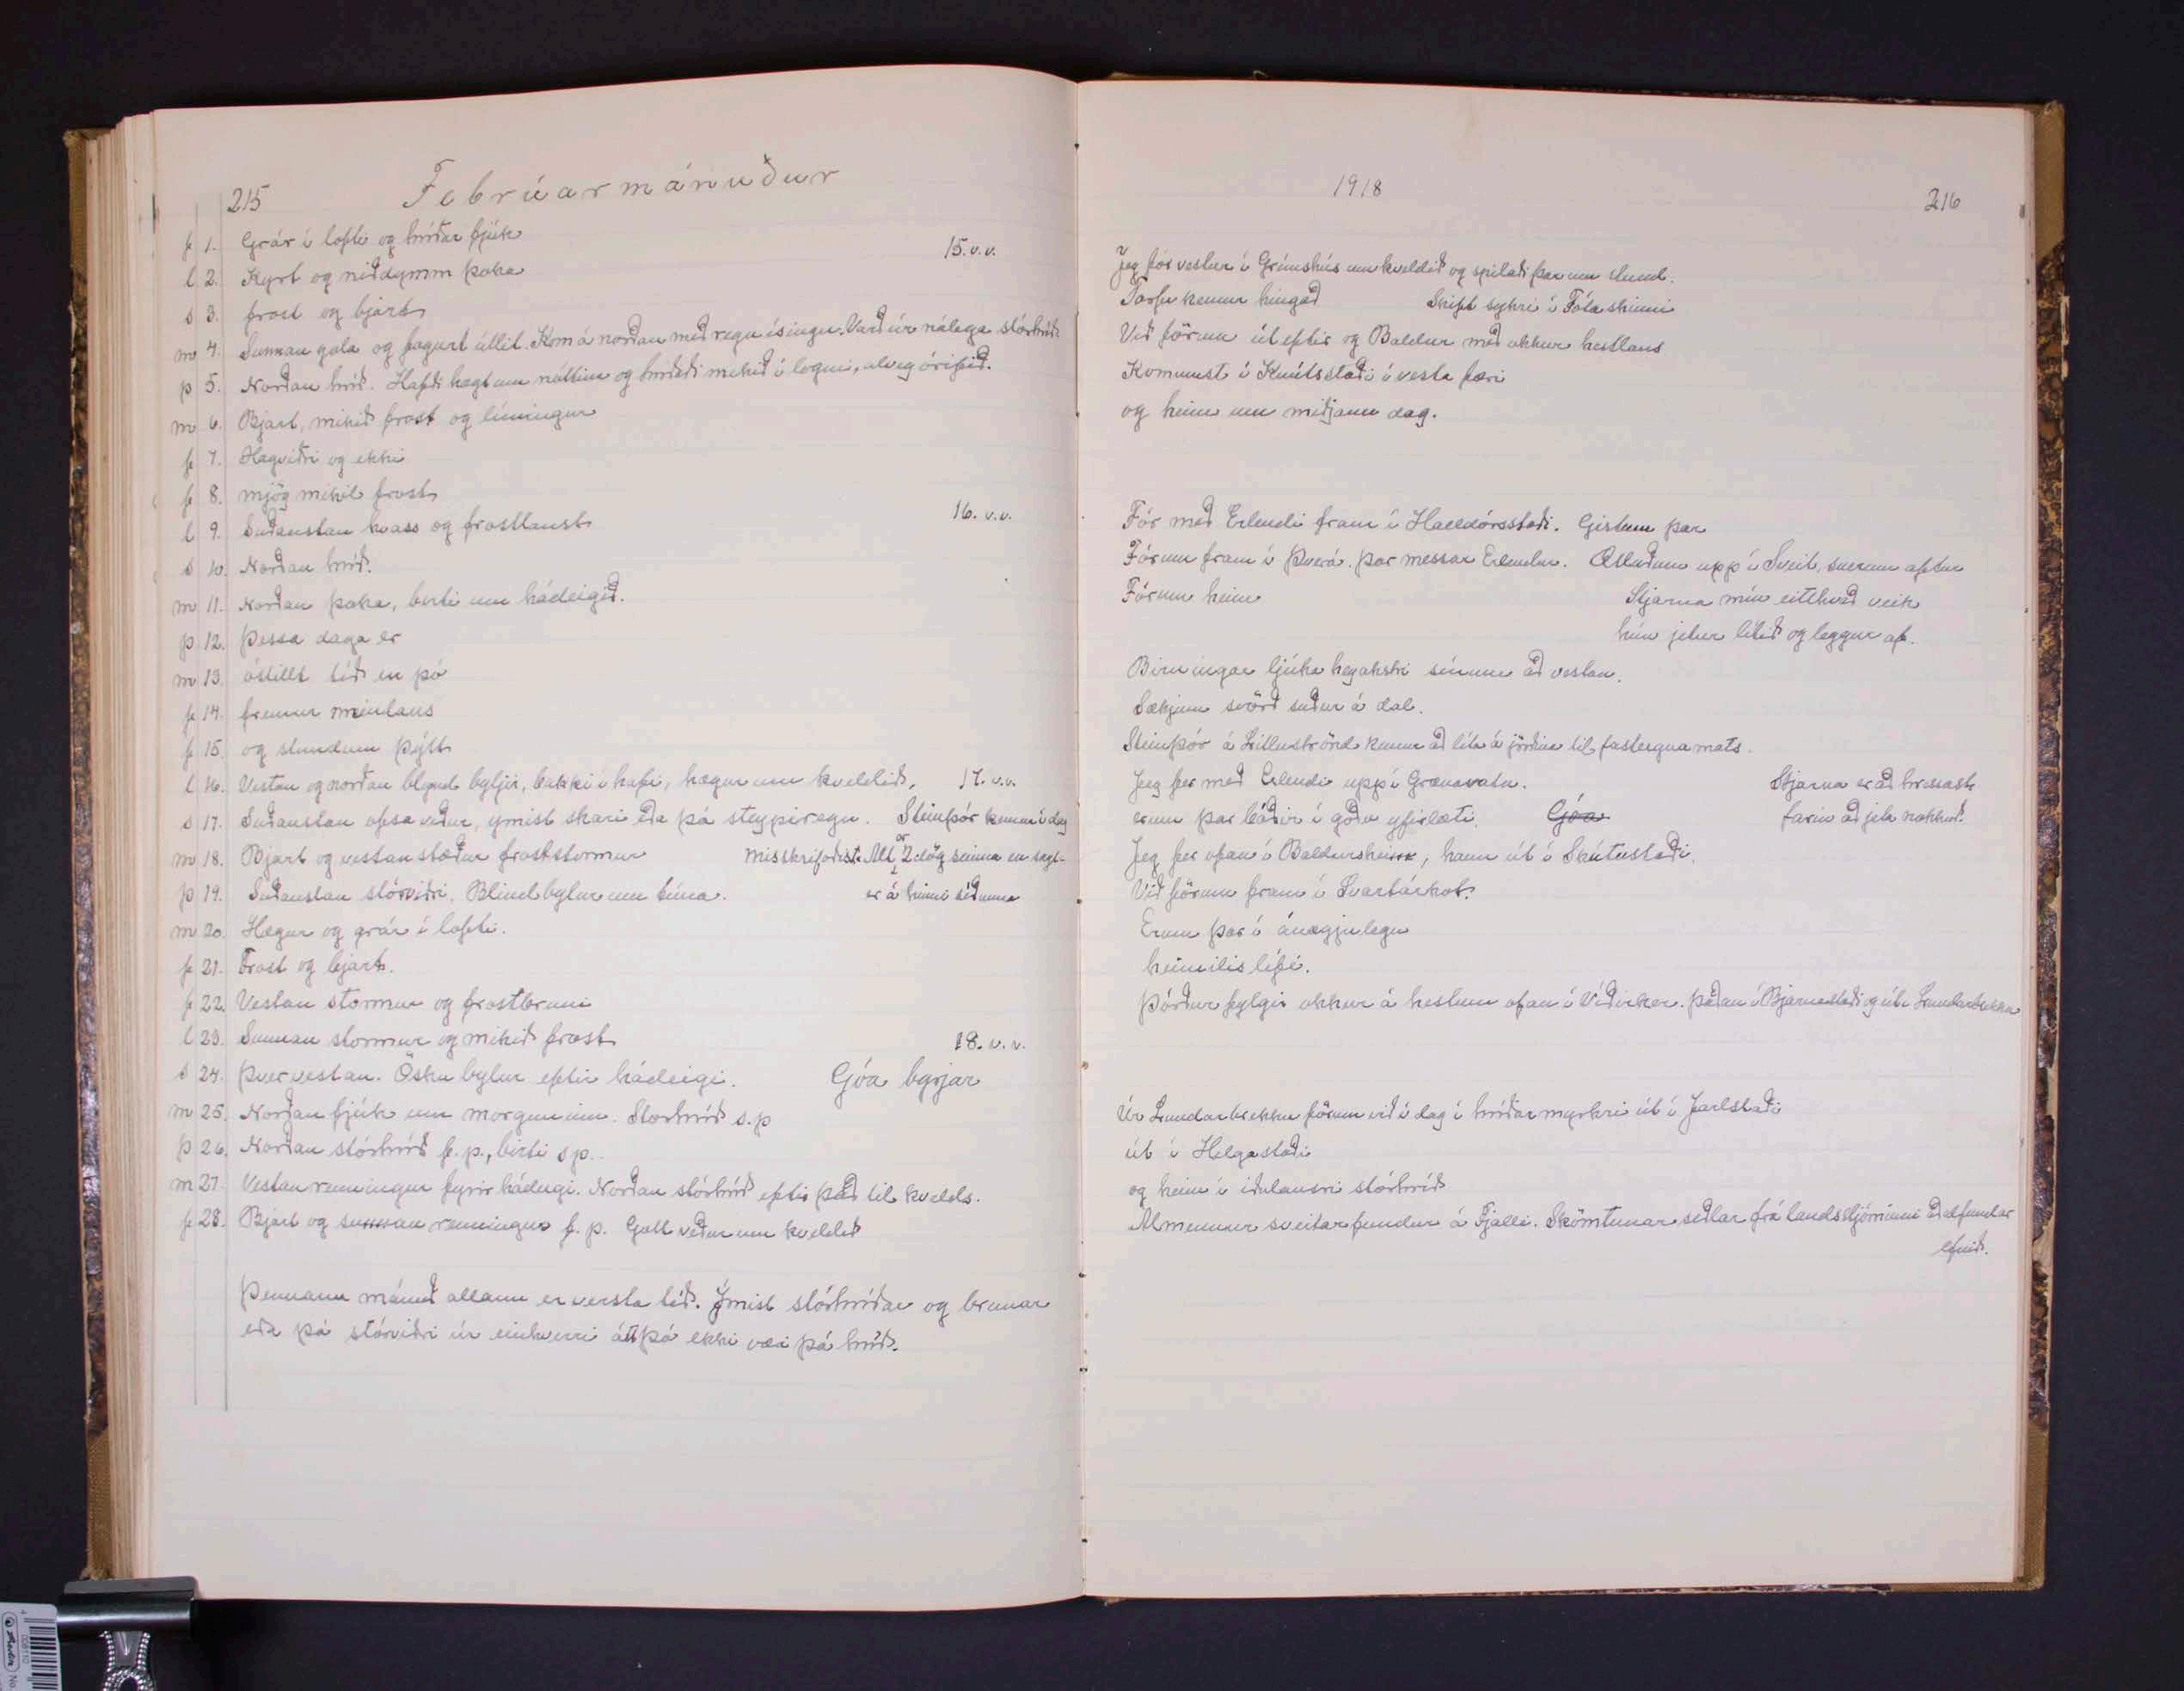 215 Febrúarmánuður
f 1. Grár í lofti og hríðar fjúk 15. v.v.
l 2. Kyrt og niðdymm þoka
s 3. frost og bjart
m 4. Sunnan gola og fagurt útlit. Kom á norðan með regn ísingu. Varð úr nálega stórhríð
þ 5. Norðan hríð. Hafði hægt um nóttina og hríðaði mikið í logni, alveg órifið.
m 6. Bjart, mikið frost og
f 7. Hægviðri og ekki
f 8. mjög mikil frost
l 9. Suðaustan hvass og frostlaust 16. v.v.
s 10. Norðan hríð.
m 11. Norðan þoka, birti um hádeigið.
þ 12. Þessa daga er
m 13. óstillt tíð en þó
f 14. fremur meinlaus
f 15. og stundum þýtt
l 16. Vestan og norðan blind byljir, bakki í hafi, hægur um kveldið. 17. v.v.
s 17. Suðaustan ofsa veður, ymist skari eða þá steypiregn. Steinþór kemur í dag
m 18. Bjart og vestan stæður froststormur misskrifaðist. Alt er 2 dög seinna en sagt
þ 19. Suðaustan stórviðri. Blindbylur um tíma. er á hinni síðunni
m 20. Hægur og grár í lofti.
f 21. Frost og bjart.
f 22. Vestan stormur og frostbruni
l 23. Sunnan stormur og mikið frost 18. v.v.
s 24. Þver vestan. Ösku bylur eftir hádeigi. Góa byrjar
m 25. Norðan fjúk um morguninn. Stórhríð s.p
þ 26. Norðan stórhríð f.p., birti s p.
m 27. Vestan renningur fyrir hádeigi. Norðan stórhríð eftir það til kvelds.
f 28. Bjart og sunnan renningur f. p. Gott veður um kveldið
Þennann mánuð allann er versta tíð. Ýmist stórhríðar og brunar
eða þá stórviðri úr einhverri átt þó ekki væri þá hríð.
1918 216
Jeg fór vestur í Grímshús um kveldið og spilaði þar um stund.
Torfi kemur hingað Skift sykri í Fótaskinni
Við förum út eftir og Baldur með okkur hestlaus
Komumst í Knútsstaði í vesta færi
og heim um miðjann dag.
Fór með Erlendi fram í Halldórsstaði. Gistum þar
Fórum fram í Þverá. Þar messar Erlendur. Ætluðum upp í Sveit, snerum aftur
Fórum heim Stjarna mín eitthvað veik
hún jetur lítið og leggur af.
Birningar ljúka heyakstri sínum að vestan.
Sækjum svörð suður á dal.
Steinþór á Litluströnd kemur að líta á jörðina til fasteignamats.
Jeg fer með Erlendi upp í Grænavatn. Stjarna er að hressast
erum þar báðir í góðu yfirlæti. Góa farin að jeta nokkuð.
Jeg fer ofan í Baldursheim, hann út í Skútustaði.
Við förum fram í Svartárkot.
Erum þar í ánægjulegu
heimilis lífi.
Þórður fylgir okkur á hestum ofan í Víðirker. Þaðan í Bjarnastaði og út í Lundarbrekku
Úr Lundarbrekku förum við í dag í hríðar myrkri út í Jarlstaði
út í Helgastaði
og heim í iðulausri stórhríð
Almennur sveitarfundur á Fjalli. Skömtunar seðlar frá landsstjórninni aðalfundar
efnið.